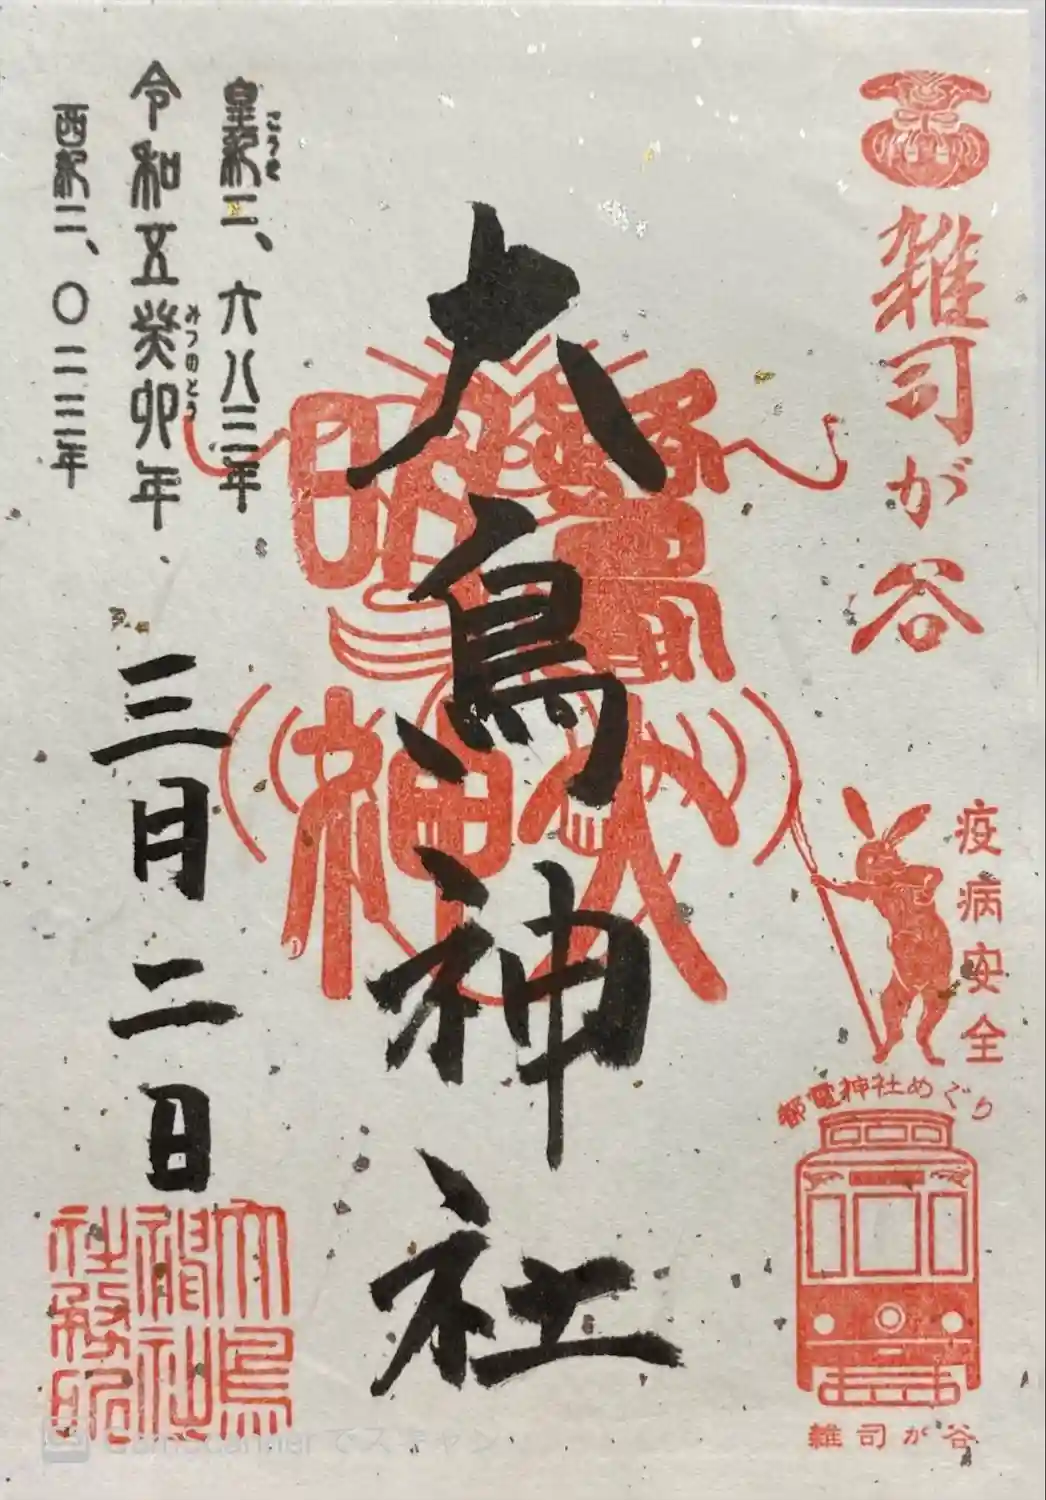 雑司が谷
疫病安全
都電神社めぐり
雑司が谷
大鳥神社
皇紀二、六八三年
こうき
令和五癸卯年
みつのとう
西紀二、〇二三年
三月二日
大鳥
神社
社務所
CamScanner でスキャン